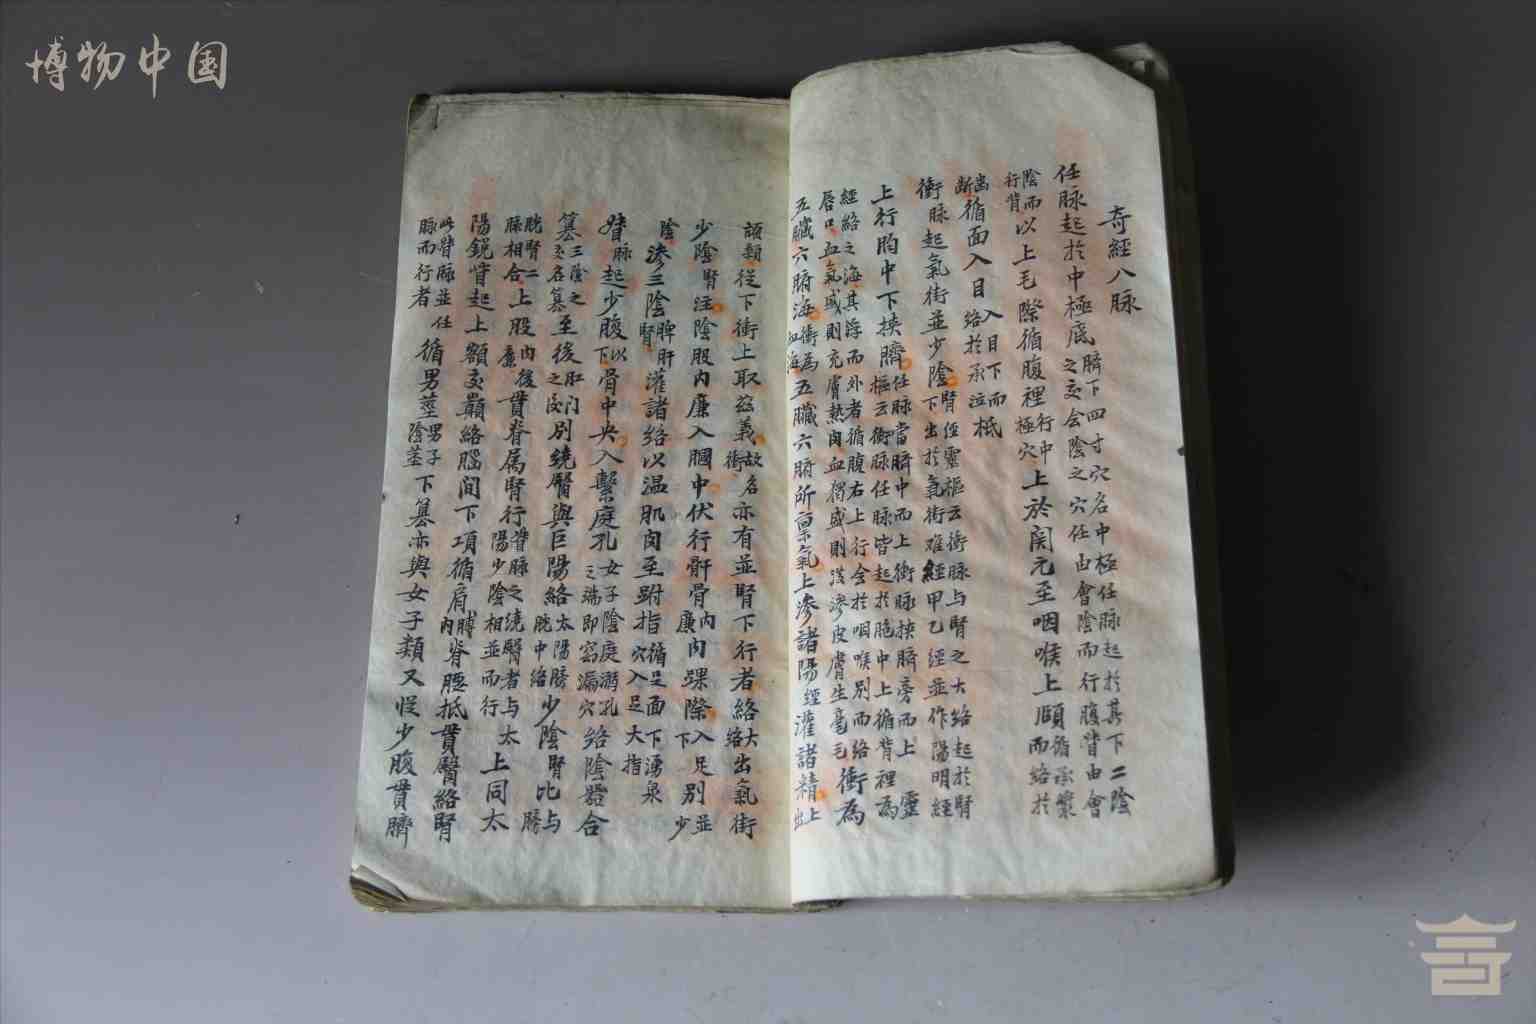 博物中国
奇經八脉
任脉起於中極底臍下四寸穴名中極任脉起於其下二陰之交会陰之穴任由會陰而行腹督由會
陰而行背以上毛際循腹裡行中極穴上於関元至咽喉上頤循承漿而絡於
齒齗循面入目入目下而絡於承泣柢
衝脉起氣街並少陰腎经靈枢云衝脉与腎之大絡起於腎下出於氣街难經甲乙經並作陽明經
上行胸中下挾臍任脉當臍中而上衝脉挾臍旁而上靈樞云衝脉任脉皆起於胞中上循背裡為
經絡之海其浮而外者循腹右上行会於咽喉别而络唇口血氣盛則充膚熱肉血獨盛則淡滲皮膚生毫毛衝為
五臟六腑海衝為血海五臟六腑所禀氣上渗諸陽經灌諸精上出
頏顙從下衝上取兹義故名衝亦有並腎下行者絡大絡出氣街
少陰腎注陰股内廉入膕中伏行骭骨内廉内踝際入足别並少
陰渗三陰脾肝腎灌諸络以温肌肉至跗指循足面下湧泉穴入足大指
督脉起少腹以下骨中央入繫庭孔女子陰庭溺孔之端即窈漏穴络陰器合
篡三陰之交名篡至後肛门之後别繞臀與巨陽絡太陽膀胱中络少陰腎比与膀
胱腎二脉相合上股内後廉貫脊属腎行督脉之繞臀者与太陽少陰相並而行上同太
陽鋭眥起上額交巔絡腦间下項循肩膊内脊腰抵貫臀絡腎
此督脉並任脉而行者循男莖男子陰莖下篡亦與女子類又從少腹貫臍